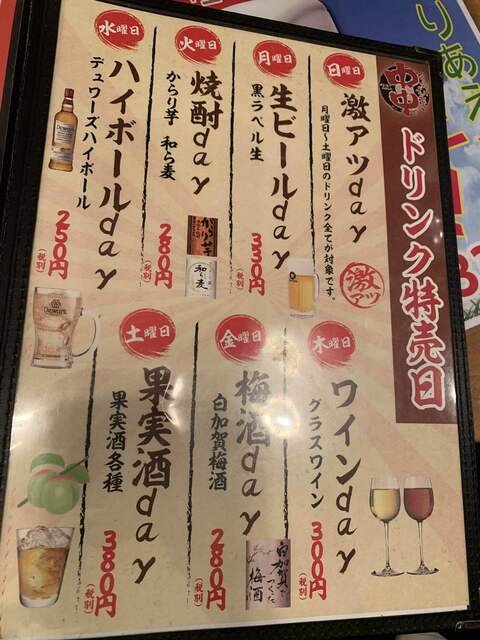 ドリンク特売日
日曜日
激アツday
月曜日～土曜日のドリンク全てが対象です。
激アツ
月曜日
生ビールday
黒ラベル生
330円
(税別)
火曜日
焼酎day
からり芋 和ら麦
280円
(税別)
からり芋
和ら麦
水曜日
ハイボールday
デュワーズハイボール
250円
(税別)
DEWAR'S
木曜日
ワインday
グラスワイン
300円
(税別)
金曜日
梅酒day
白加賀梅酒
280円
(税別)
白加賀で
つくった
梅酒
土曜日
果実酒day
果実酒各種
380円
(税別)